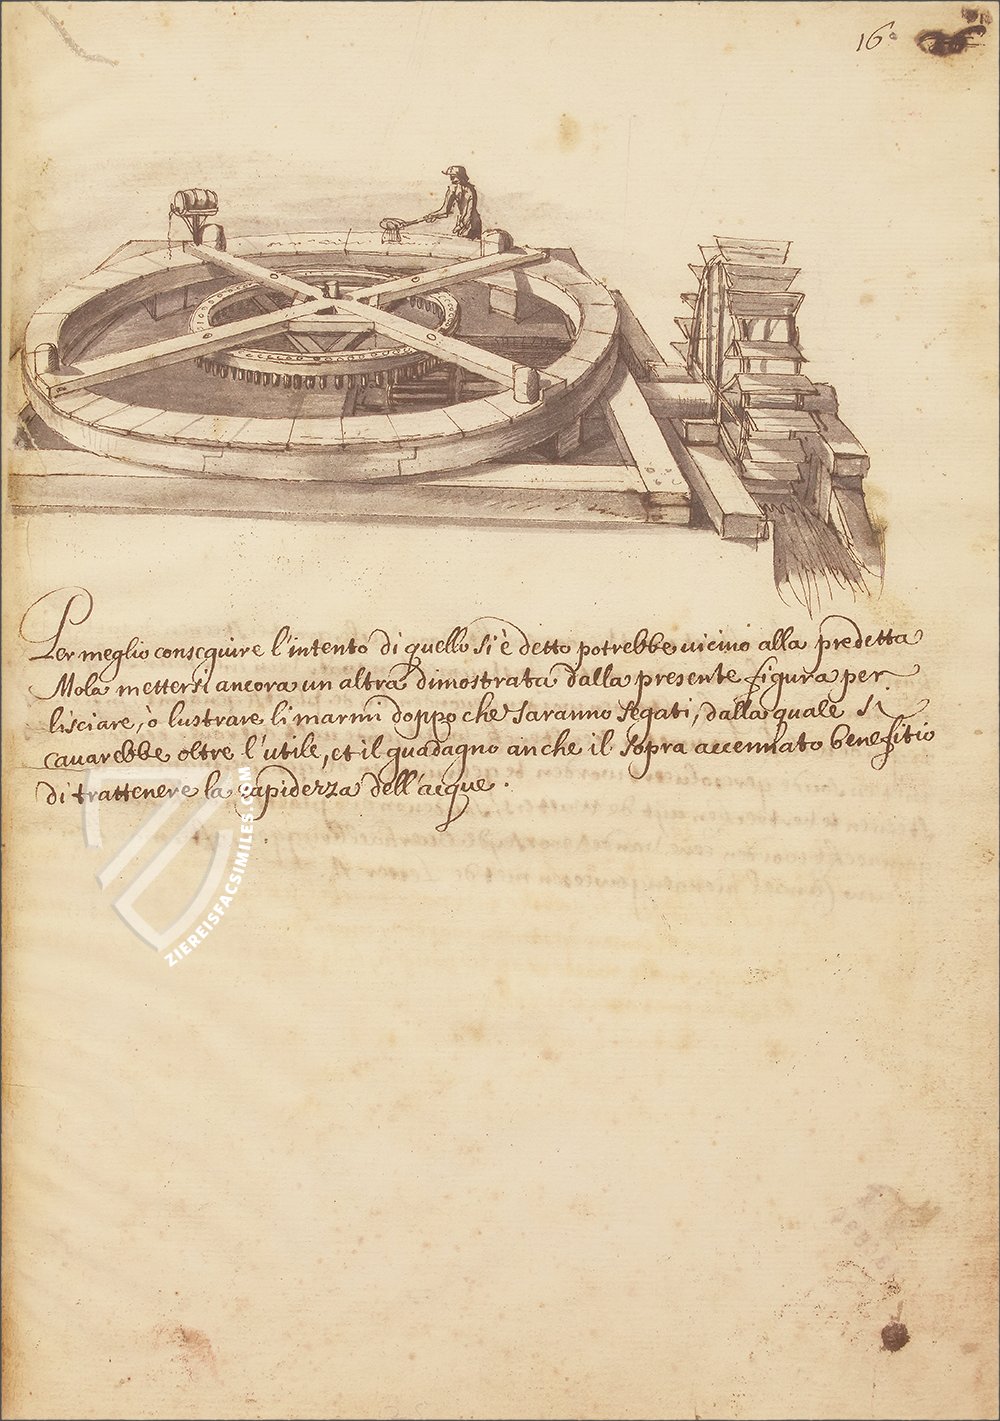 16
Per meglio conseguire l'intento di quello si è detto potrebbe vicino alla predetta
Mola mettersi ancora un altra dimostrata dalla presente figura per
lisciare, ò lustrare li marmi doppo che saranno segati, dalla quale si
cavarebbe oltre l'utile, et il guadagno anche il sopra accennato benefitio
di trattenere la rapidezza dell'acque.
ZIEREISFACSIMILES.COM